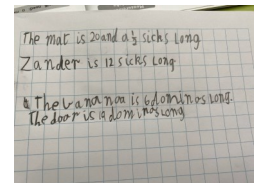 The mat is 20 and a ½ sicks long
Zander is 12 sicks long
The bananna is 6 dominos long.
The door is 19 dominos long